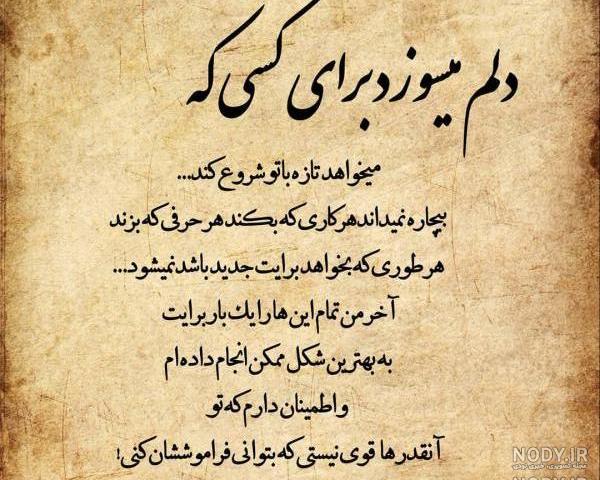 دلم میسوزد برای کسی که
میخواهد تازه با تو شروع کند...
بیچاره نمیداند هر کاری که بکند هر حرفی که بزند
هر طوری که بخواهد برایت جدید باشد نمیشود...
آخر من تمام این ها را یك بار برایت
به بهترین شکل ممکن انجام داده ام
و اطمینان دارم که تو
آنقدر ها قوی نیستی که بتوانی فراموششان کنی!
NODY.IR
مجله تصویری، خبری نودی
NODY.IR